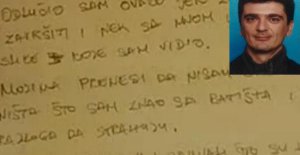 ODLUČIO SAM OVAKO JER
ZAVRŠITI I NEK SA MNOM
SLIKE KOJE SAM VIDIO.
MOJIMA PRENESI DA NISAM
NIŠTA ŠTO SAM ZNAO SA BATIŠTA I
RAZLOGA DA STRAHUJU.
ŠTO SU